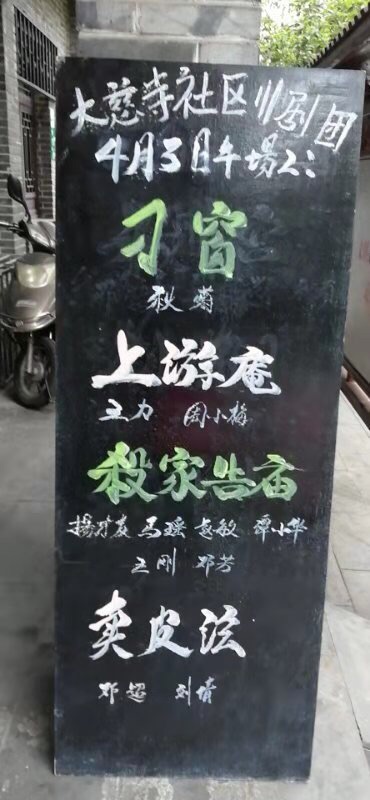 大慈寺社区川剧团
4月3日午场2:
刁窗
秋菊
上游庵
王力 周小梅
殺家告庙
杨才友 马瑶 赵敏 谭小华
王刚 邓芳
卖皮弦
邓超 刘倩